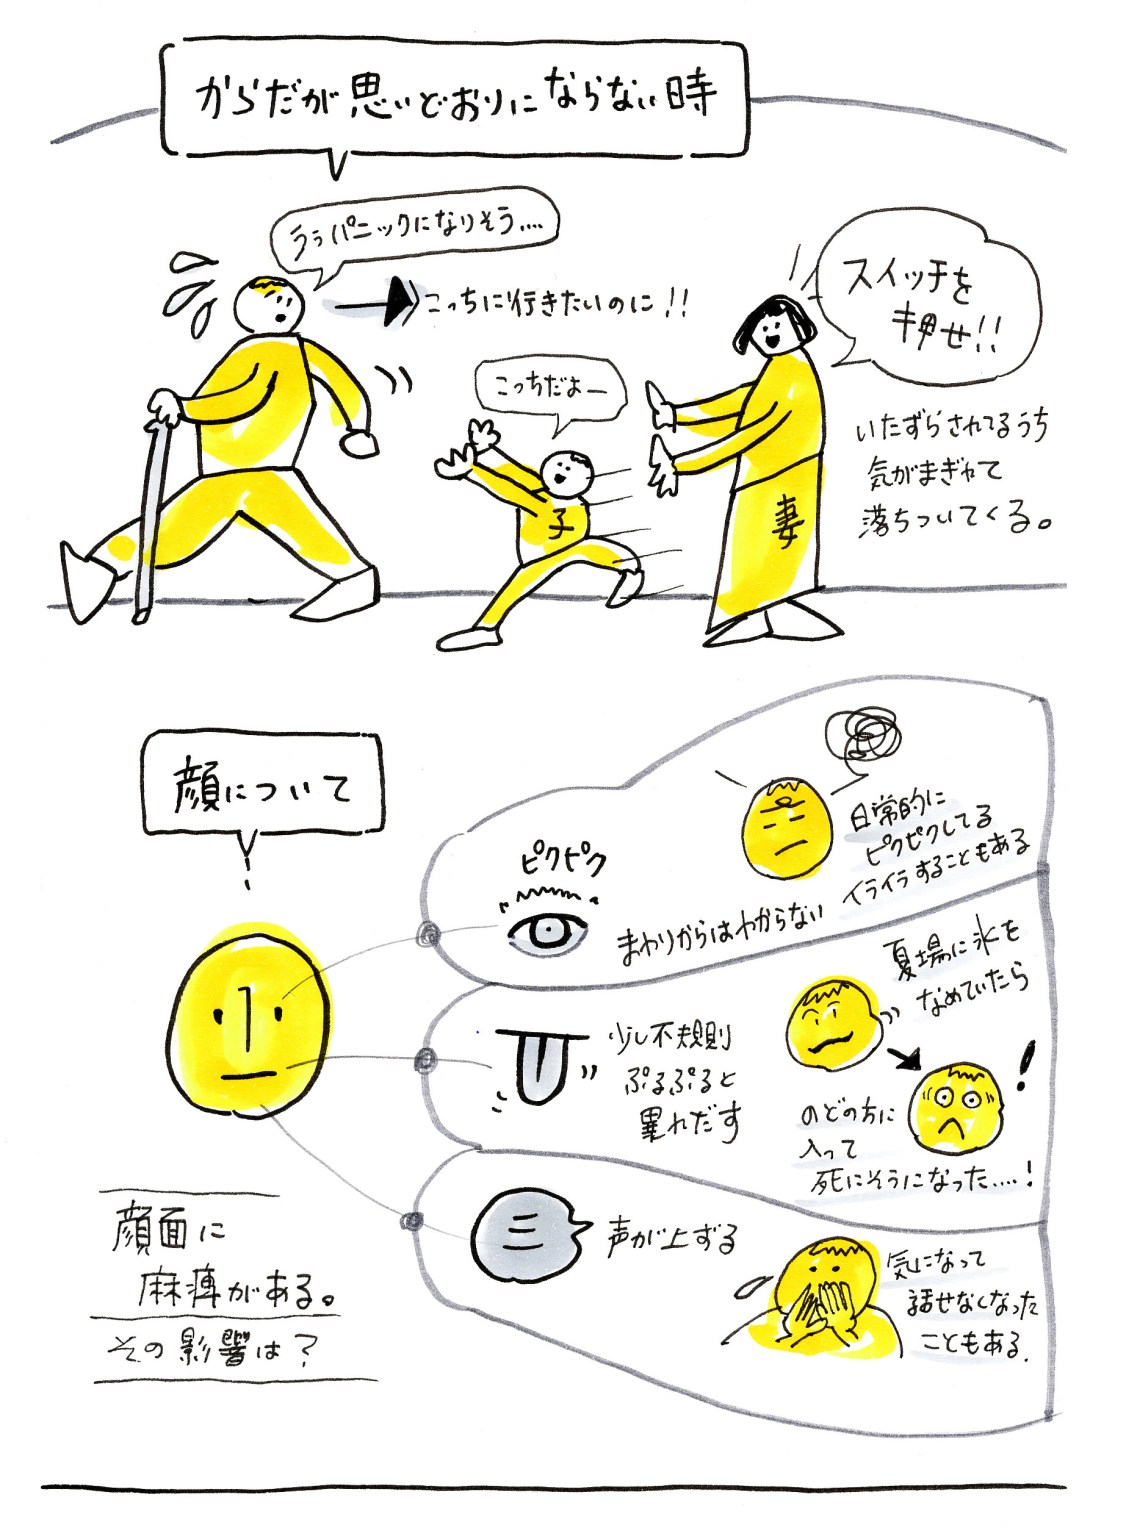 からだが思いどおりにならない時
うぅパニックになりそう....
こっちに行きたいのに!!
こっちだよー
スイッチを
押せ!!
いたずらされてるうち
気がまぎれて
落ちついてくる。
子
妻
顔について
ピクピク
まわりからはわからない
日常的に
ピクピクしてる
イライラすることもある
少し不規則
ぷるぷると
暴れだす
夏場に氷を
なめていたら
のどの方に
入って
死にそうになった....!
!
声が上ずる
気になって
話せなくなった
こともある.
顔面に
麻痺がある。
その影響は?